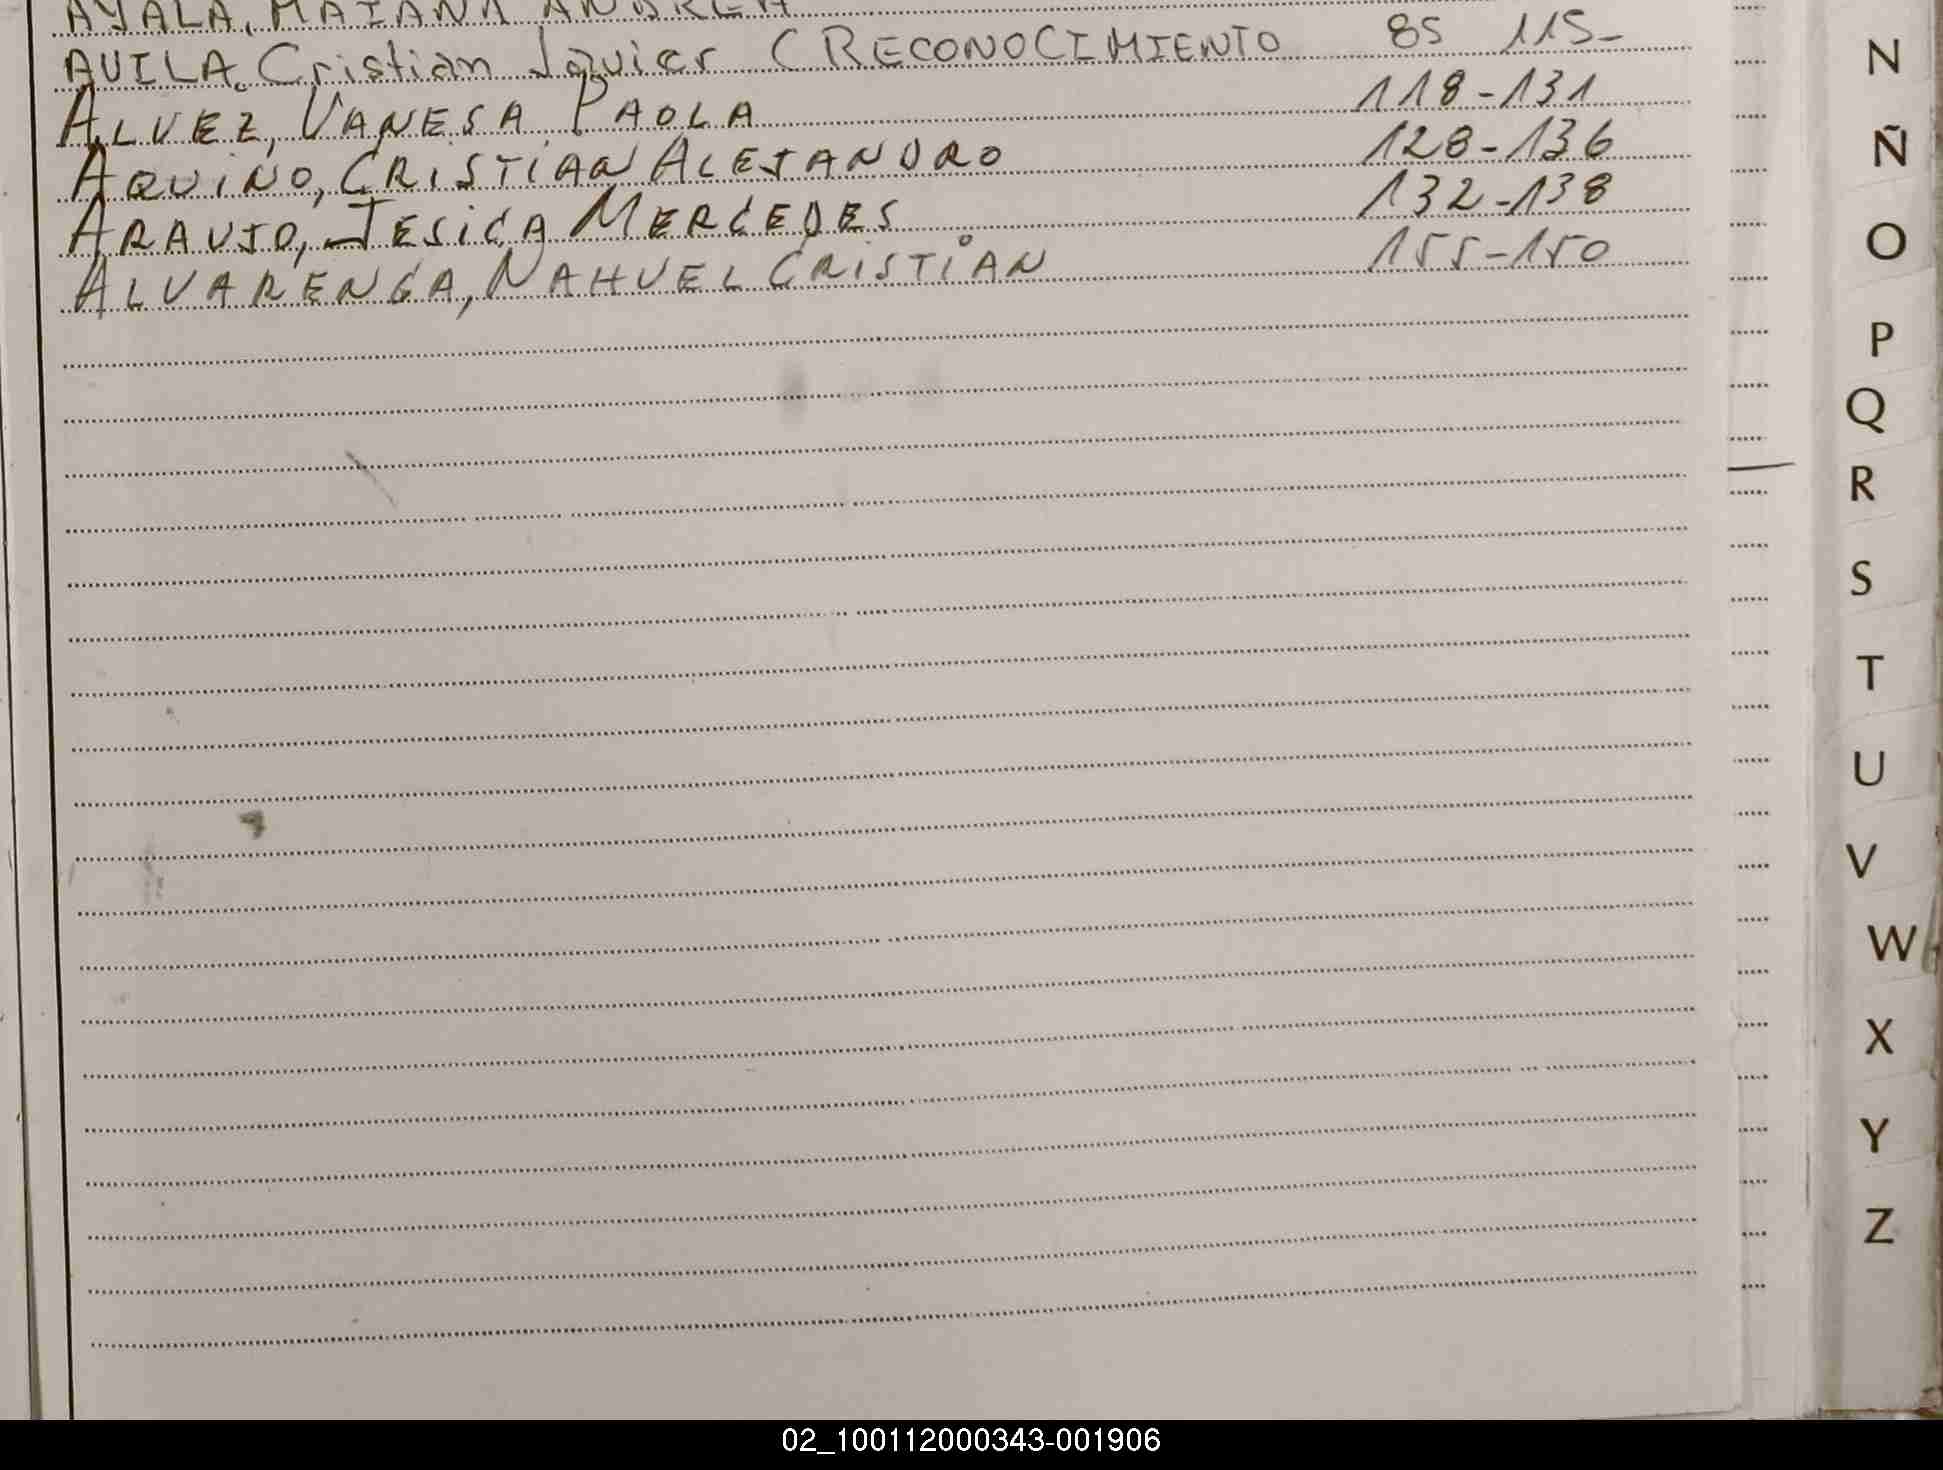 AYALA, MAIANA ANDREA
AVILA, Cristian Javier (RECONOCIMIENTO 85 115-
ALVEZ, VANESA PAOLA 118-131
AQUINO, CRISTIAN ALEJANDRO 128-136
ARAUJO, JESICA MERCEDES 132-138
ALVARENGA, NAHUEL CRISTIAN 155-150
N
Ñ
O
P
Q
R
S
T
U
V
W
X
Y
Z
02_100112000343-001906